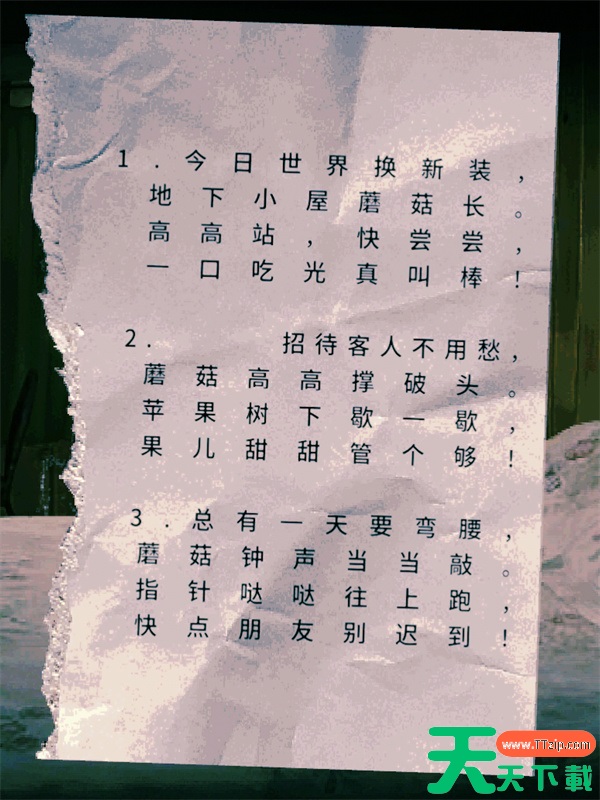 1.今日世界换新装，
地下小屋蘑菇长。
高高站，快尝尝，
一口吃光真叫棒！
2.招待客人不用愁，
蘑菇高高撑破头。
苹果树下歇一歇，
果儿甜甜管个够！
3.总有一天要弯腰，
蘑菇钟声当当敲。
指针哒哒往上跑，
快点朋友别迟到！
www.TTzip.com
天天下載